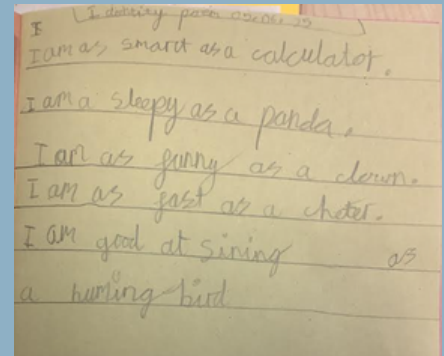 I Identity poem 05.06.25
I am as smart as a calculator.
I am a sleepy as a panda.
I am as funny as a clown.
I am as fast as a cheter.
I am good at sining as
a huming bird